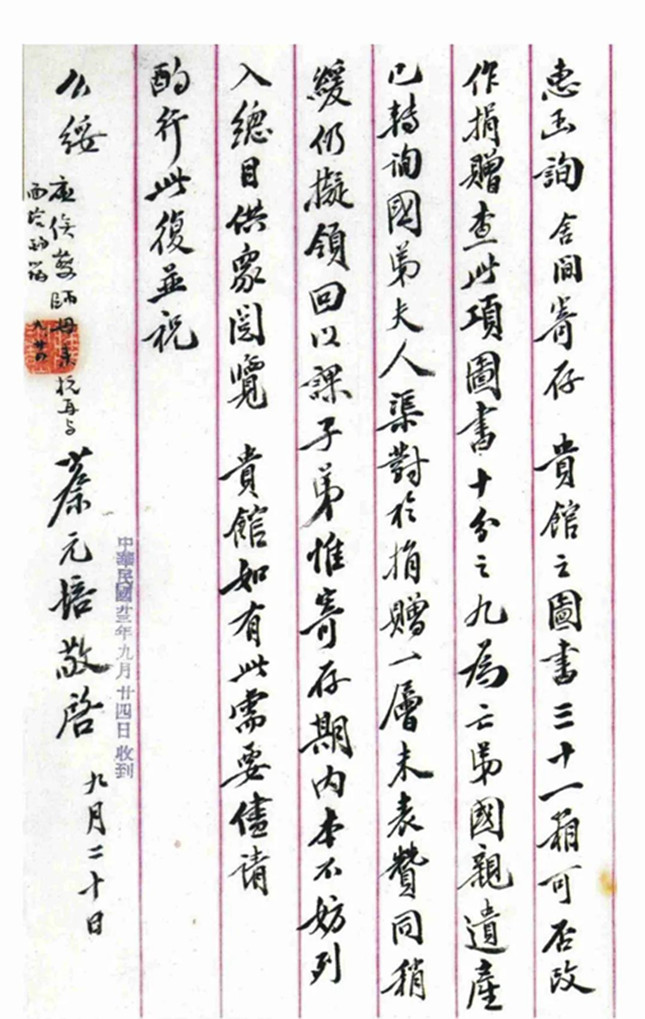 惠函詢 舍間寄存 貴館之圖書三十一箱可否改
作捐贈查此項圖書十分之九為亡弟國親遺產
已轉詢國弟夫人渠對於捐贈一層未表贊同稍
緩仍擬領回以課子弟惟寄存期內本不妨列
入總目供眾閱覽 貴館如有此需要儘請
酌行此復並祝
公綏
蔡元培敬啓 九月二十日
中華民國廿三年九月廿四日收到